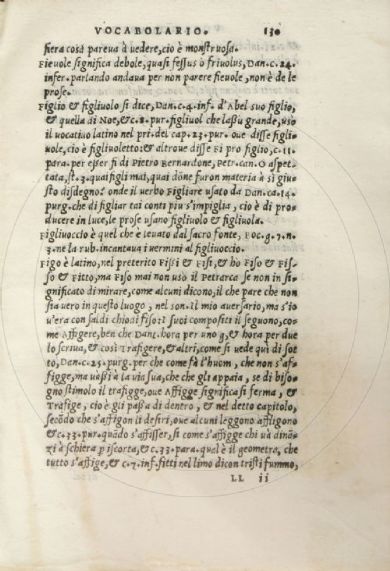 VOCABOLARIO. 130
fiera cosa pareua à uedere, cio è monstruosa.
Fieuole significa debole, quasi fessus ò friuolus, Dan.c.24.
infer. parlando andaua per non parere fieuole, non è de le
prose.
Figlio & figliuolo si dice, Dan.c.4.inf. d'Abel suo figlio,
& quella di Noe, & c.8.pur. figliuol che lassù grande, uso
il uocatiuo latino nel pri. del cap.23.pur. oue disse figli-
uole, cio è figliuoletto: & altroue disse Fi pro figlio, c.11.
para. per esser fi di Pietro Bernardone, Petr.can. O aspet
tata, st.3. quai figli mai, quai dōne furon materia à si giu-
sto disdegno? onde il uerbo Figliare usato da Dan.ca.14.
purg. che di figliar tai conti piu s'impiglia, cio è di pro-
ducere in luce, le prose usano figliuolo & figliuola.
Figliuoccio è quel che è leuato dal sacro fonte, Boc.g.7.n.
3. ne la rub. incantaua i uermini al figliuoccio.
Figo è latino, nel preterito Fissi & Fisi, & ho Fiso & Fis-
so & Fitto, ma Fiso mai non usò il Petrarca se non in si-
gnificato di mirare, come alcuni dicono, il che pare che non
sia uero in questo luogo, nel son. Il mio auersario, ma s'io
u'era con saldi chiodi fiso: I suoi compositi il seguono, co-
me Affigere, ben che Dant. hora per uno g, & hora per due
lo scriua, & così Trafigere, & altri, come si uede quì di sot
to, Dan.c.25.purg. per che come fà l'huom, che non s'af-
figge, ma uassi à la uia sua, che che gli appaia, se di biso-
gno stimolo il trafigge, oue Affigge significa si ferma, &
Trafige, cio è gli passa di dentro, & nel detto capitolo,
secōdo che s'affigon li desiri, oue alcuni leggono affliggon
& c.33.pur. quādo s'affisser, si come s'affigge chi uà dinā-
zi à schiera p iscorta, & c.33.para. qual è il geometra, che
tutto s'affige, & c.7.inf. fitti nel limo dicon tristi fummo,
LL ii